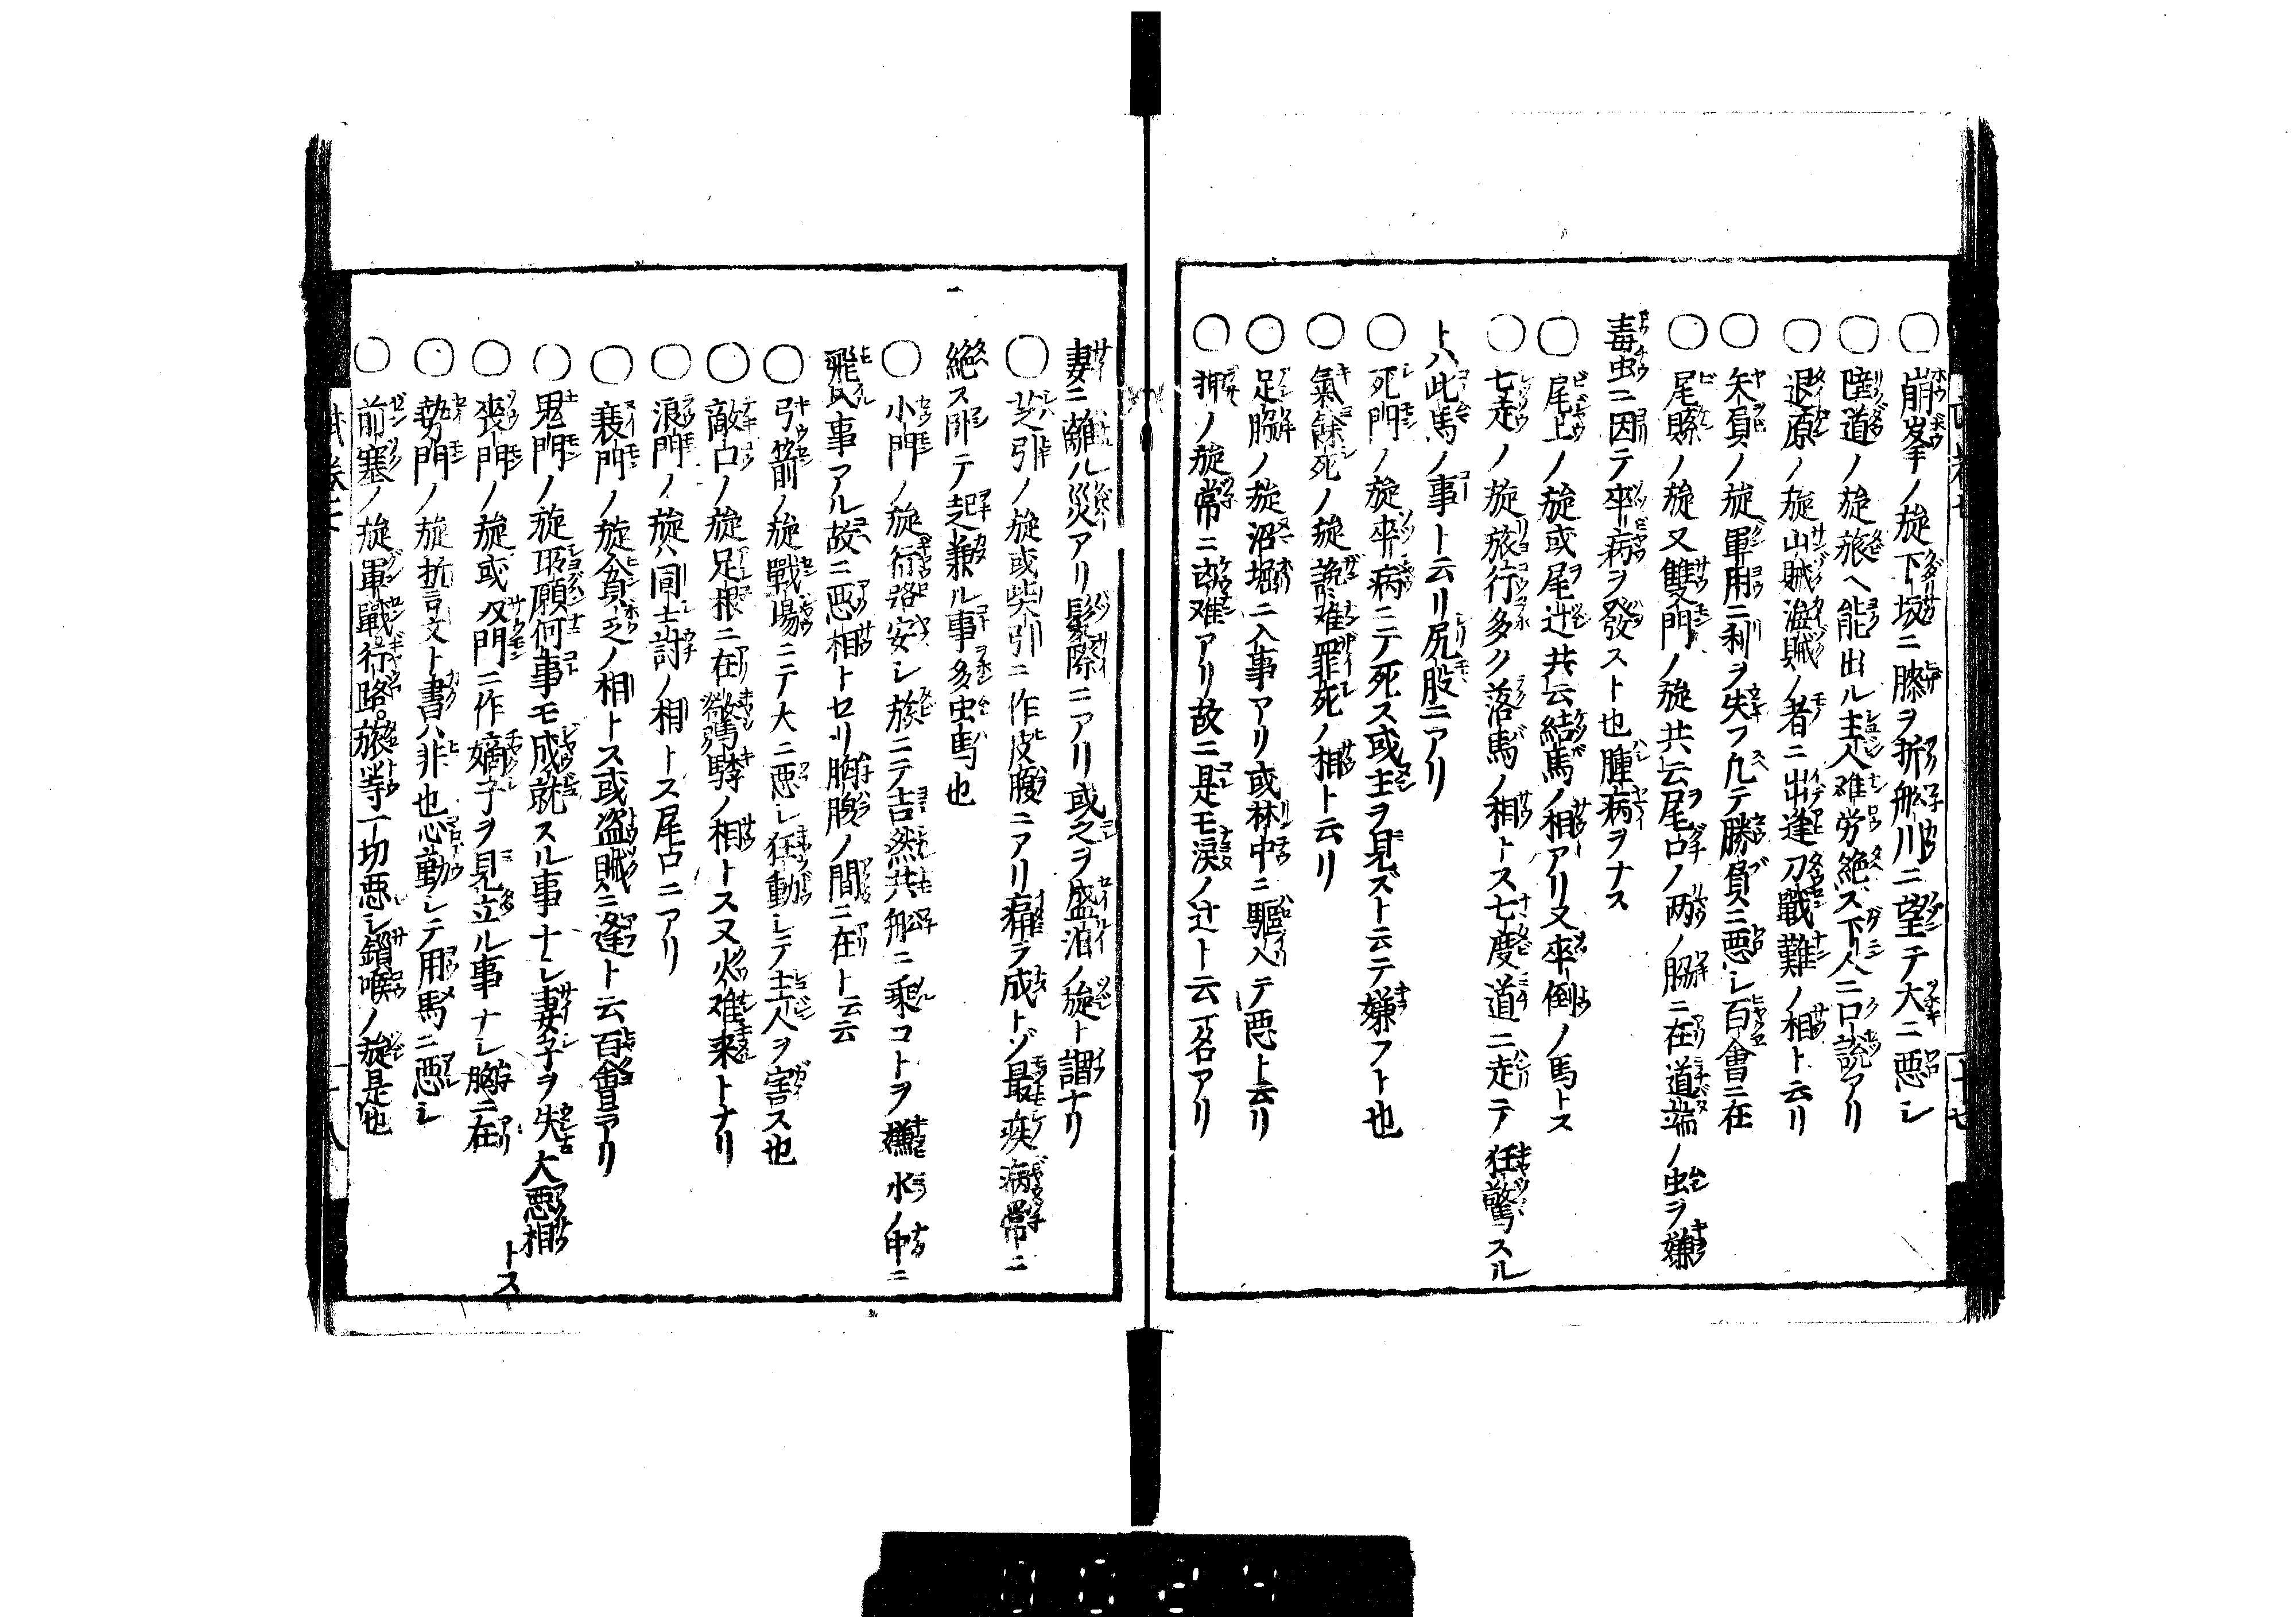 ○崩峯ノ旋下坂ニ膝ヲ折船川ニ望テ大ニ悪シ
○陸道ノ旋旅ヘ能出ル主人难労絶ス下人ニ口説アリ
○退原ノ旋山賊海賊ノ者ニ出逢刀戰難ノ相ト云リ
○矢負ノ旋軍用ニ利ヲ失フ凡テ勝負ニ悪シ百會ニ在
○尾縣ノ旋又雙門ノ旋共云尾口ノ两ノ脇ニ在道端ノ虫ヲ嫌
毒虫ニ因テ卒病ヲ發スト也腫病ヲナス
○尾上ノ旋或尾辻共云結馬ノ相アリ又卒倒ノ馬トス
○七走ノ旋旅行多ク落馬ノ相トス七度道ニ走テ狂驚スル
トハ此馬ノ事ト云リ尻股ニアリ
○死門ノ旋卒病ニテ死ス或主ヲ見ズト云テ嫌フト也
○氣餘死ノ旋难罪死ノ相ト云リ
○足脇ノ旋沼堀ニ入事アリ或林中ニ驅入テ悪ト云リ
○ノ旋常ニ难アリ故ニ是モ淚ノ辻ト云名アリ
妻ニ離ル災アリ髮際ニアリ或之ヲ盛泊ノ旋ト謂ナリ
○芝引ノ旋或柴引ニ作皮腹ニアリ痛ヲ成トゾ最疾病常ニ
絶ス臥テ起兼ル事多虫馬也
○小門ノ旋行路安シ旅ニテ吉然共船ニ乘コトヲ嫌水ノ中ニ
飛入事アル故ニ悪相トセリ胸腹ノ間ニ在ト云云
○引箭ノ旋戰場ニテ大ニ悪シ狂動シテ主人ヲ害ス也
○敵口ノ旋足根ニ在驚騎ノ相トス又火难来トナリ
○浪門ノ旋ハ同士討ノ相トス尾口ニアリ
○衰門ノ旋貧乏ノ相トス或盗賊ニ逢ト云百會ニアリ
○鬼門ノ旋所願何事モ成就スル事ナシ妻子ヲ失大悪相トス
○喪門ノ旋或双門ニ作嫡子ヲ見立ル事ナシ胸ニ在
○勢門ノ旋折言文ト書ハ非也恐動シテ用馬ニ悪シ
○前塞ノ旋軍戰行路旅等一切悪シ鎖喉ノ旋是也